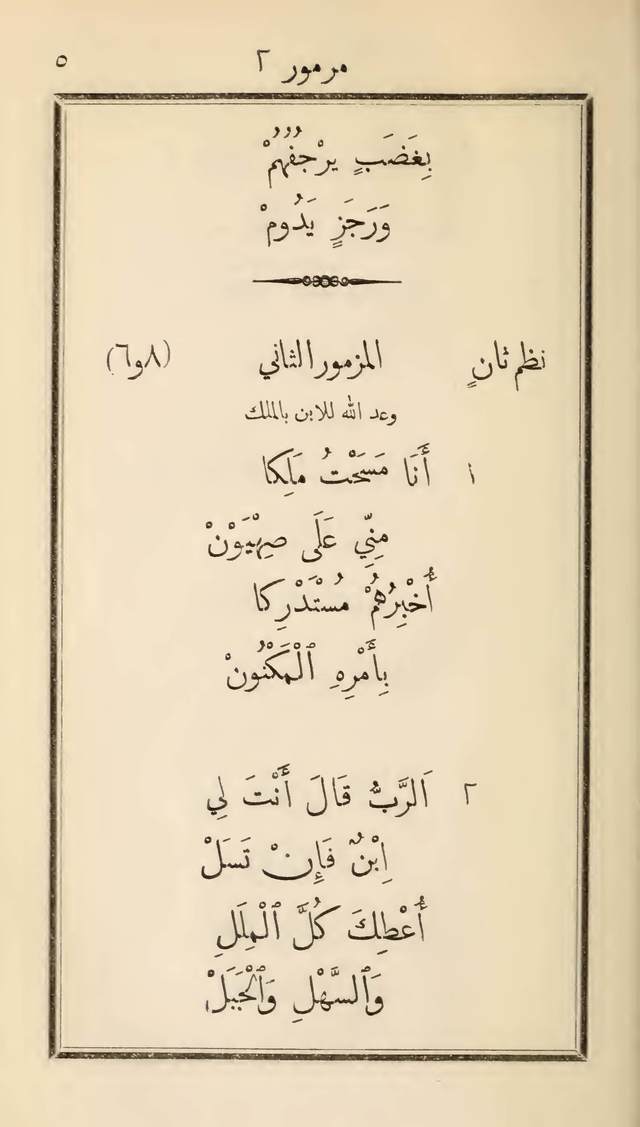 مزمور ٢ ٥
بِغَضَبٍ يرْجُفُهُمْ
وَرَجَزٍ يَدُومْ
نظم ثانٍ المزمور الثاني (٨و٦)
وعد الله للابن بالملك
١ أَنَا مَسَحْتُ مَلِكا
مِنِّي عَلَى صِهْيَوْنْ
أُخْبِرُهُمْ مُسْتَدْرِكا
بِأَمْرِهِ ٱلْمَكْنُونْ
٢ اَلرَّبُّ قَالَ أَنْتَ لِي
اِبْنٌ فَإِنْ تَسَلْ
أُعْطِكَ كُلَّ ٱلْمِلَلِ
وَٱلسَّهْلِ وَٱلْجَبَلْ